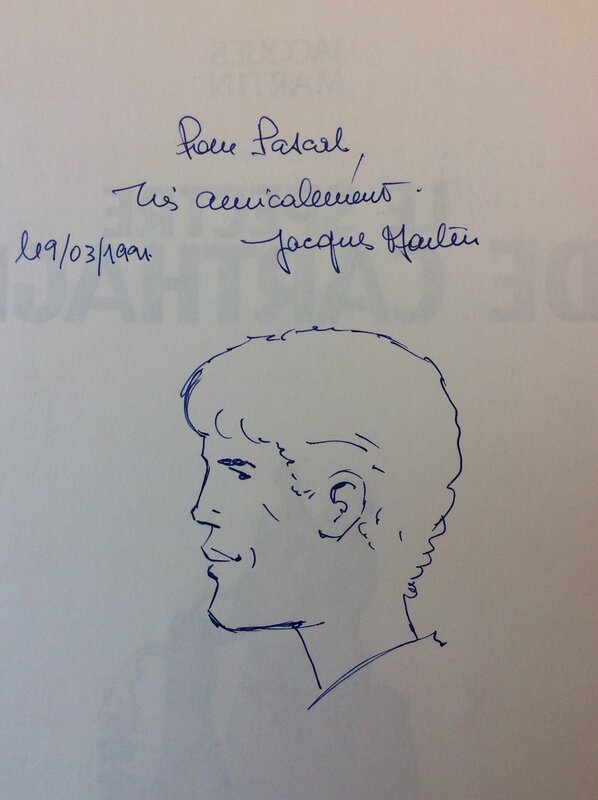 Pour Pascal,
Très amicalement.
le 19/03/1991. Jacques Martin
JACQUES
MARTIN
LE SPECTRE
DE CARTHAGE